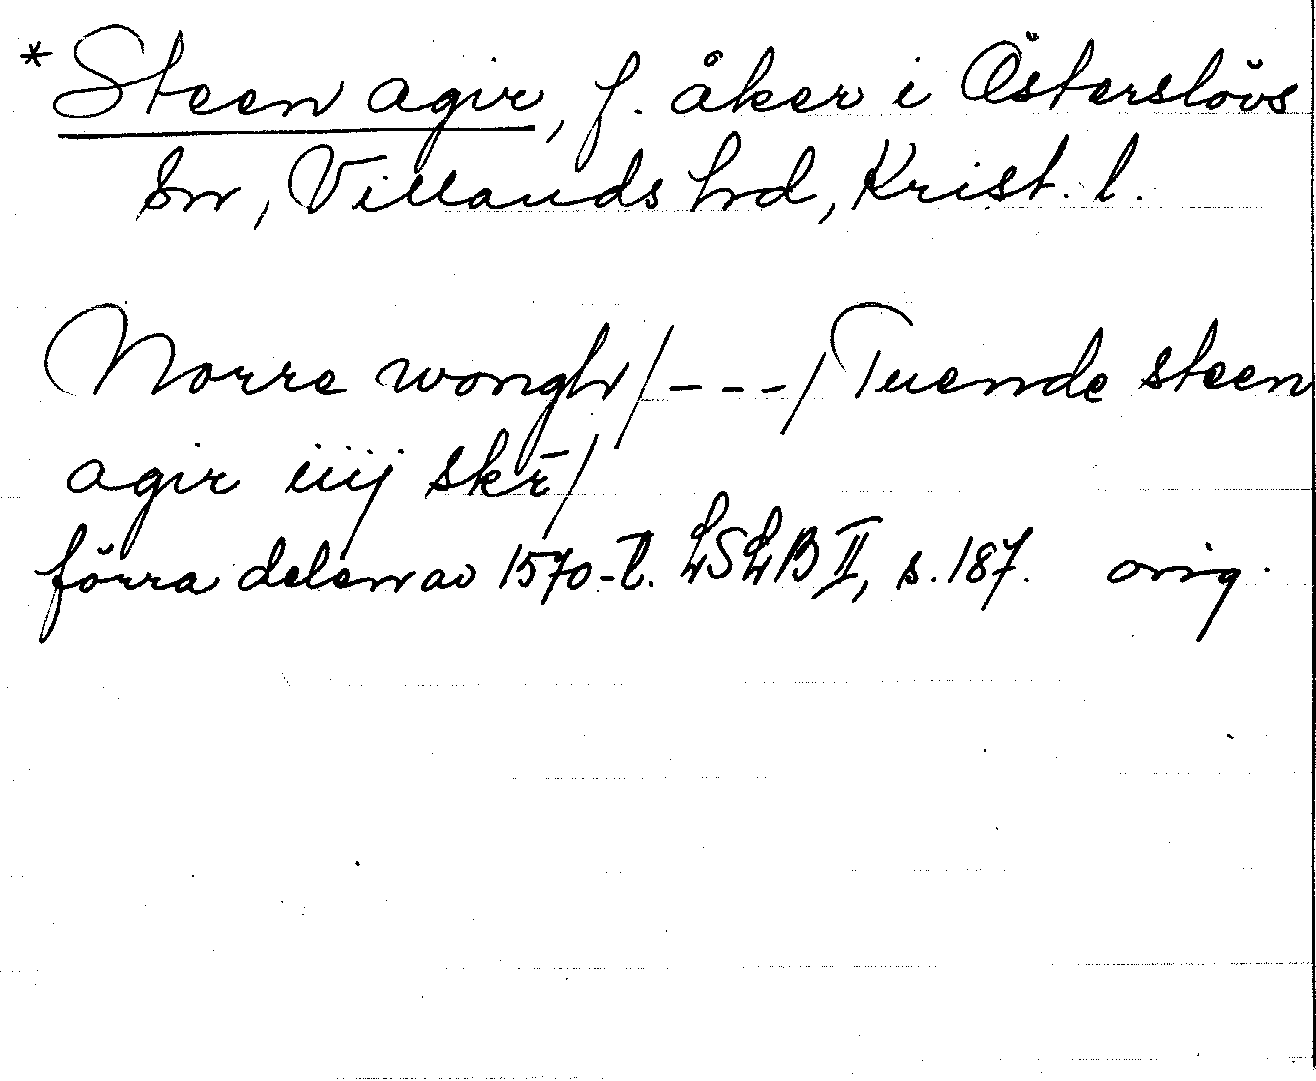 * Steen agir, f. åker i Österslövs
sn, Villands hrd, Krist. l.
Norre wongh/---/Tuende steen
agir iiij skr̄/
förra delen av 1570-t. LSLB II, s. 187. orig.